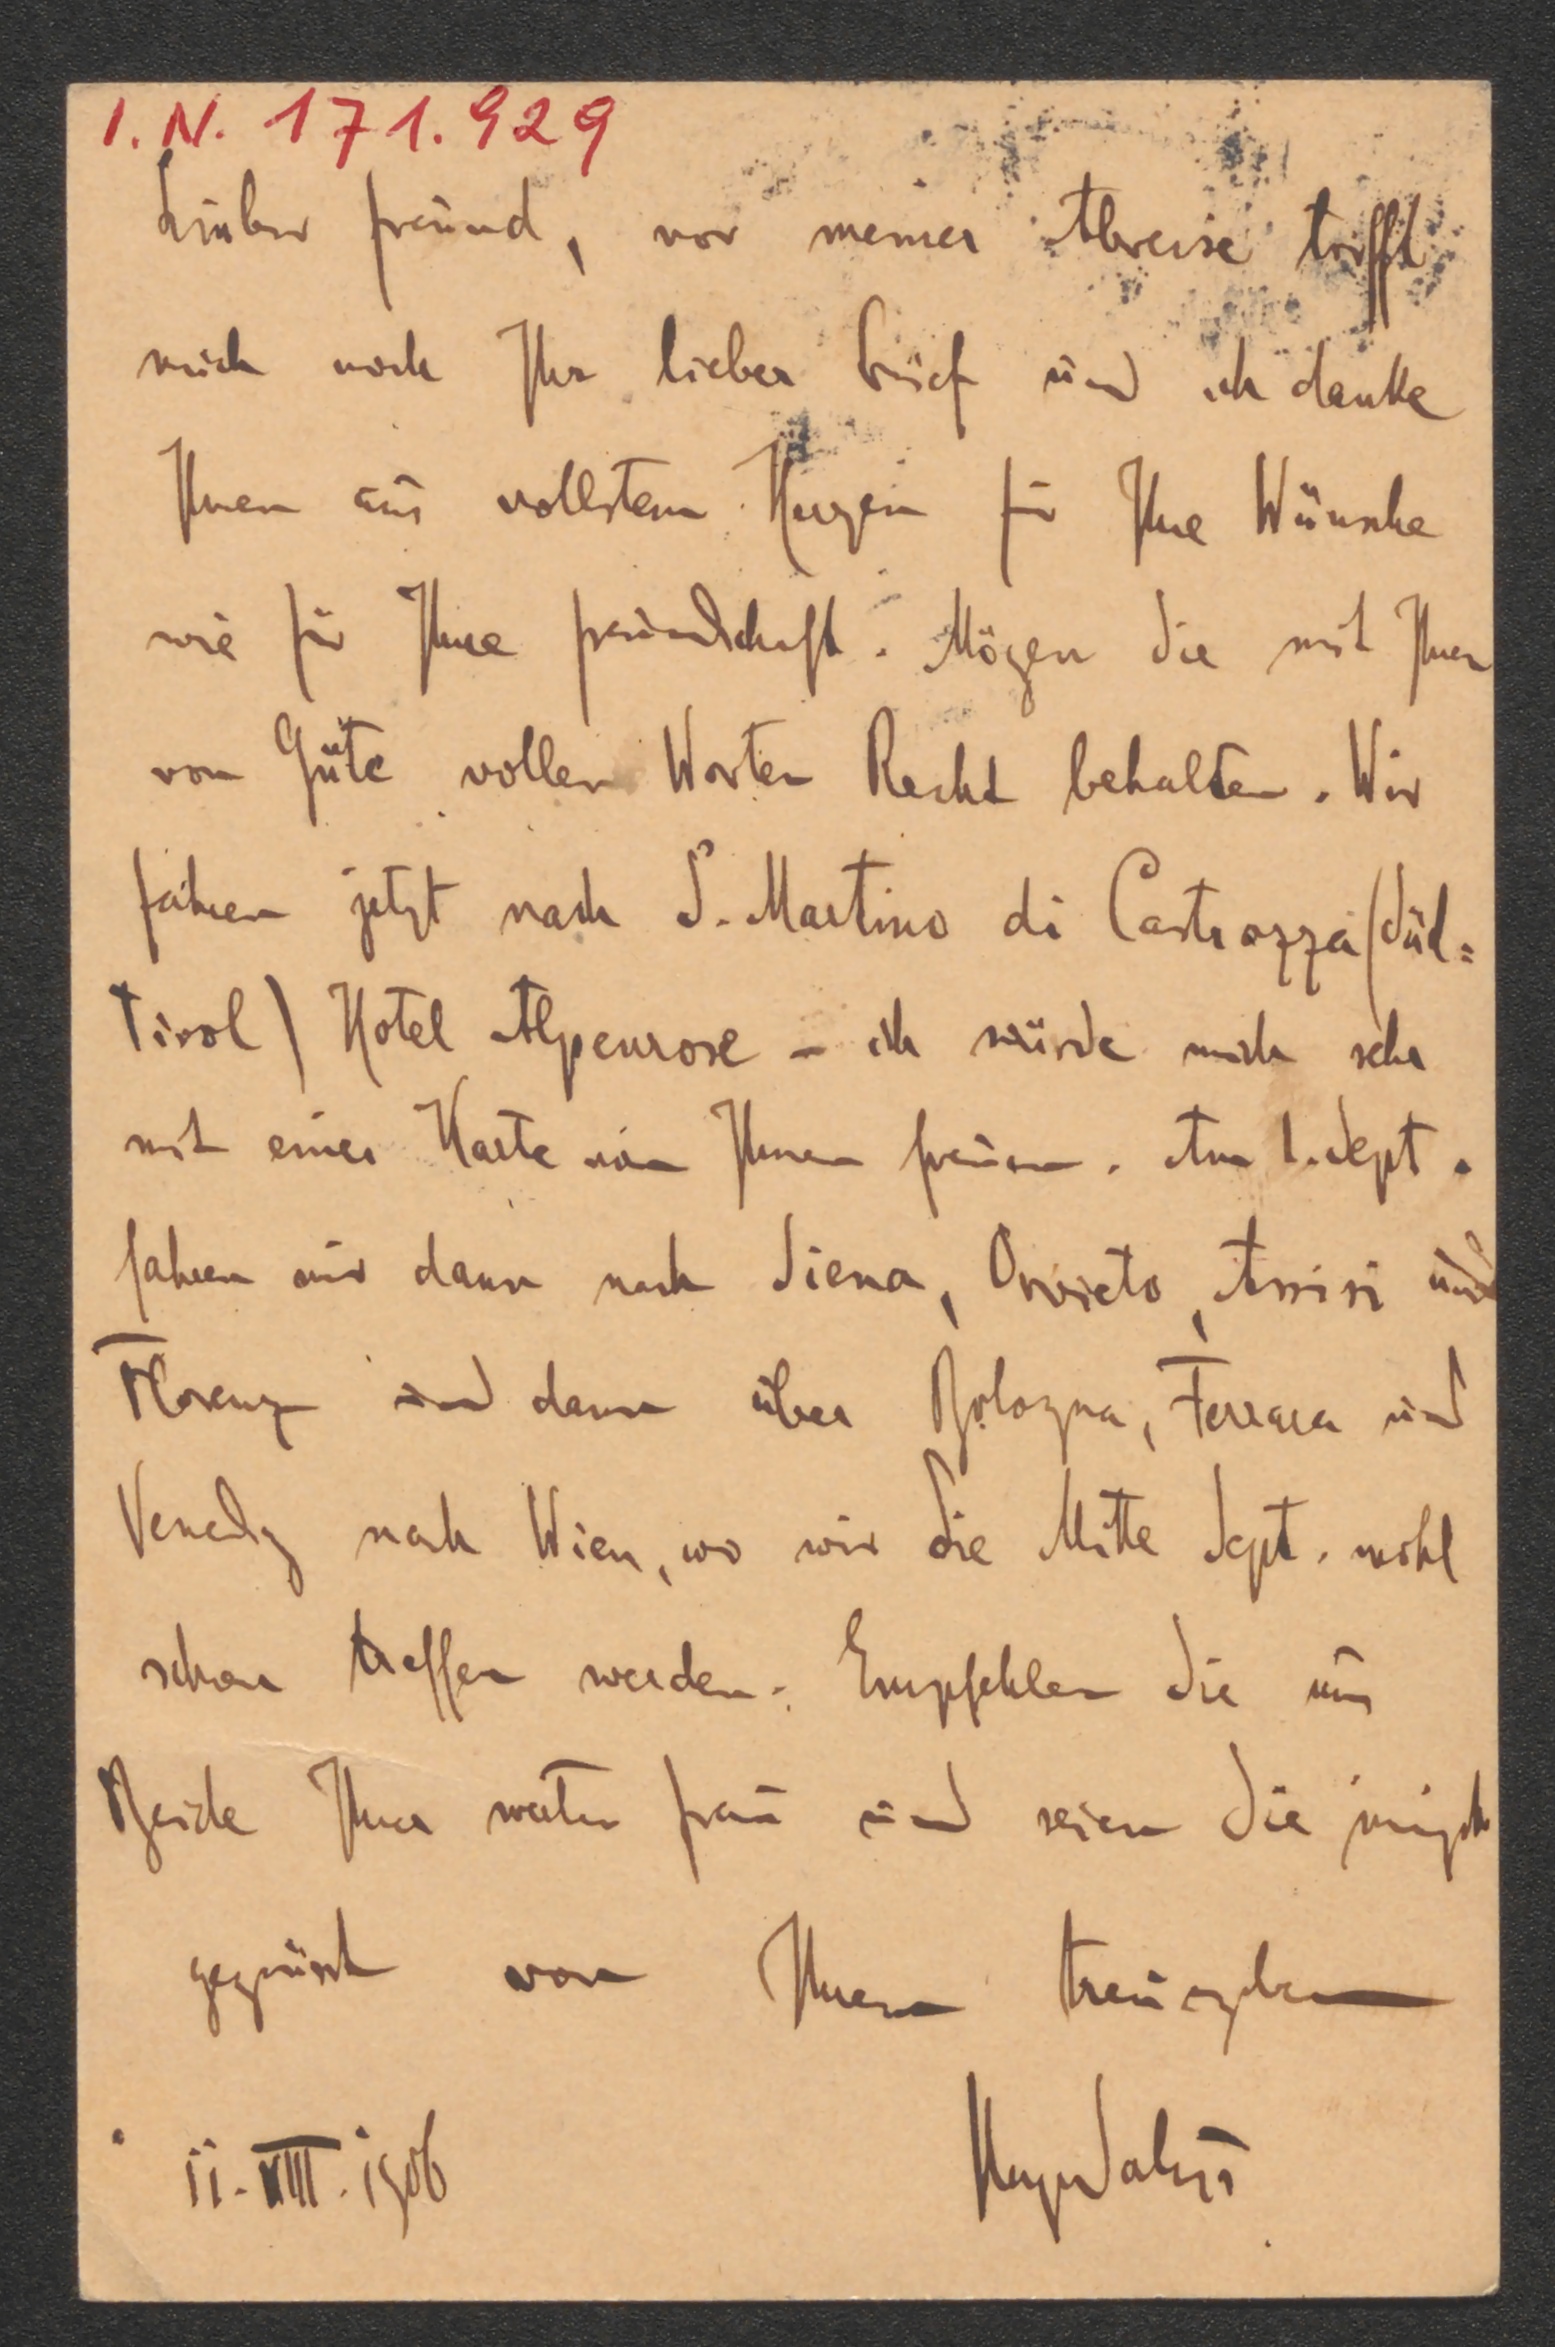 I.N. 171.929
Lieber Freund, vor meiner Abreise trifft
mich noch Ihr lieber Brief und ich danke
Ihnen aus vollstem Herzen für Ihre Wünsche
wie für Ihre Freundschaft. Mögen die mit Ihrer
von Güte vollen Worten Recht behalten. Wir
fahren jetzt nach S. Martino di Castrozza (Süd=
tirol) Hotel Alpenrose – ich würde mich sehr
mit einer Karte von Ihnen freuen. Am 1. Sept.
fahren wir dann nach Siena, Orvieto, Assisi und
Florenz und dann über Bologna, Ferrara und
Venedig nach Wien, wo wir Sie Mitte Sept. wohl
schon treffen werden. Empfehlen Sie uns
Beide Ihrer werten Frau und seien Sie innigst
gegrüsst von Ihrem treuergebenen
11. VIII. 1906